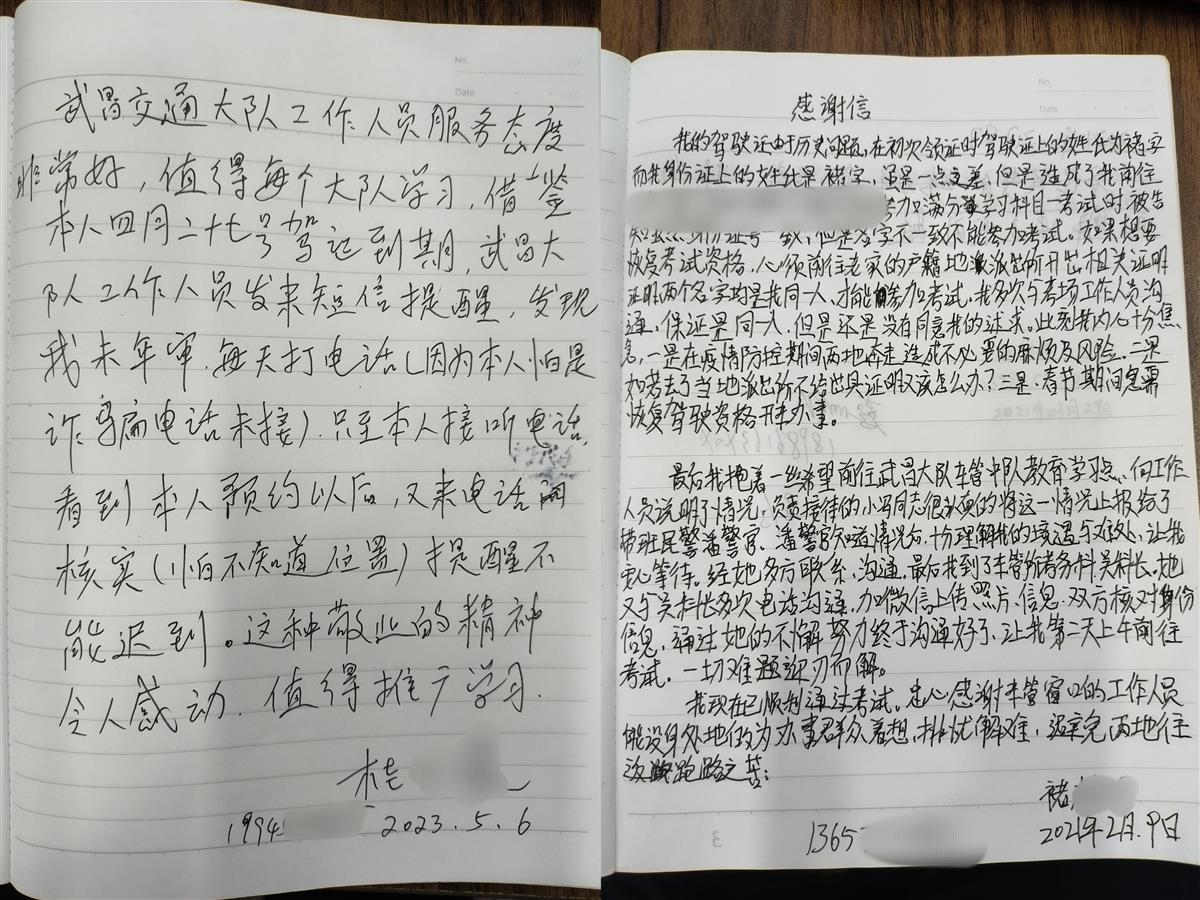 No.
Date
武昌交通大队工作人员服务态度
非常好,值得每个大队学习,借鉴
本人四月二十七号驾证到期,武昌大
队工作人员发来短信提醒,发现
我未年审,每天打电话(因为本人怕是
诈骗电话未接).只至本人接听电话,
看到本人预约以后,又来电话
核实(怕不知道位置)提醒不
能迟到。这种敬业的精神
令人感动.值得推广学习.
桂
1994 2023.5.6
No.
Date
感谢信
我的驾驶证由于历史问题,在初次领证时驾驶证上的姓氏为褚字
而我身份证上的姓氏是褚字,虽是一点之差,但是造成了我前往
参加满分学习科目一考试时,被告
知虽然身份证号一致,但是名字不一致不能参加考试。如果想要
恢复考试资格,必须前往老家的户籍地派出所开出相关证明
证明两个名字均是我同一人,才能参加考试,我多次与考场工作人员沟
通,保证是同一人,但是还是没有同意我的诉求。此刻我内心十分焦
急,一是在疫情防控期间两地奔走造成不必要的麻烦及风险.二是
如若去了当地派出所不给出具证明又该怎么办?三是.春节期间急需
恢复驾驶资格开车办事。
最后我抱着一丝希望前往武昌大队车管中队教育学习点,向工作
人员说明了情况,负责接待的小冯同志很认真的将这一情况上报给了
带班民警潘警官、潘警官知道情况后,十分理解我的境遇与难处,让我
安心等待。经她多方联系,沟通,最后找到了车管所考务科吴科长,她
又与吴科长多次电话沟通,加微信上传照片、信息.双方核对身份
信息,通过她的不懈努力终于沟通好了,让我第二天上午前往
考试,一切难题迎刃而解。
我现在已顺利通过考试。忠心感谢车管窗口的工作人员
能设身处地的为办事群众着想,排忧解难,避免两地往
返跑路之苦;
褚
1365 2021年2月.9日
3